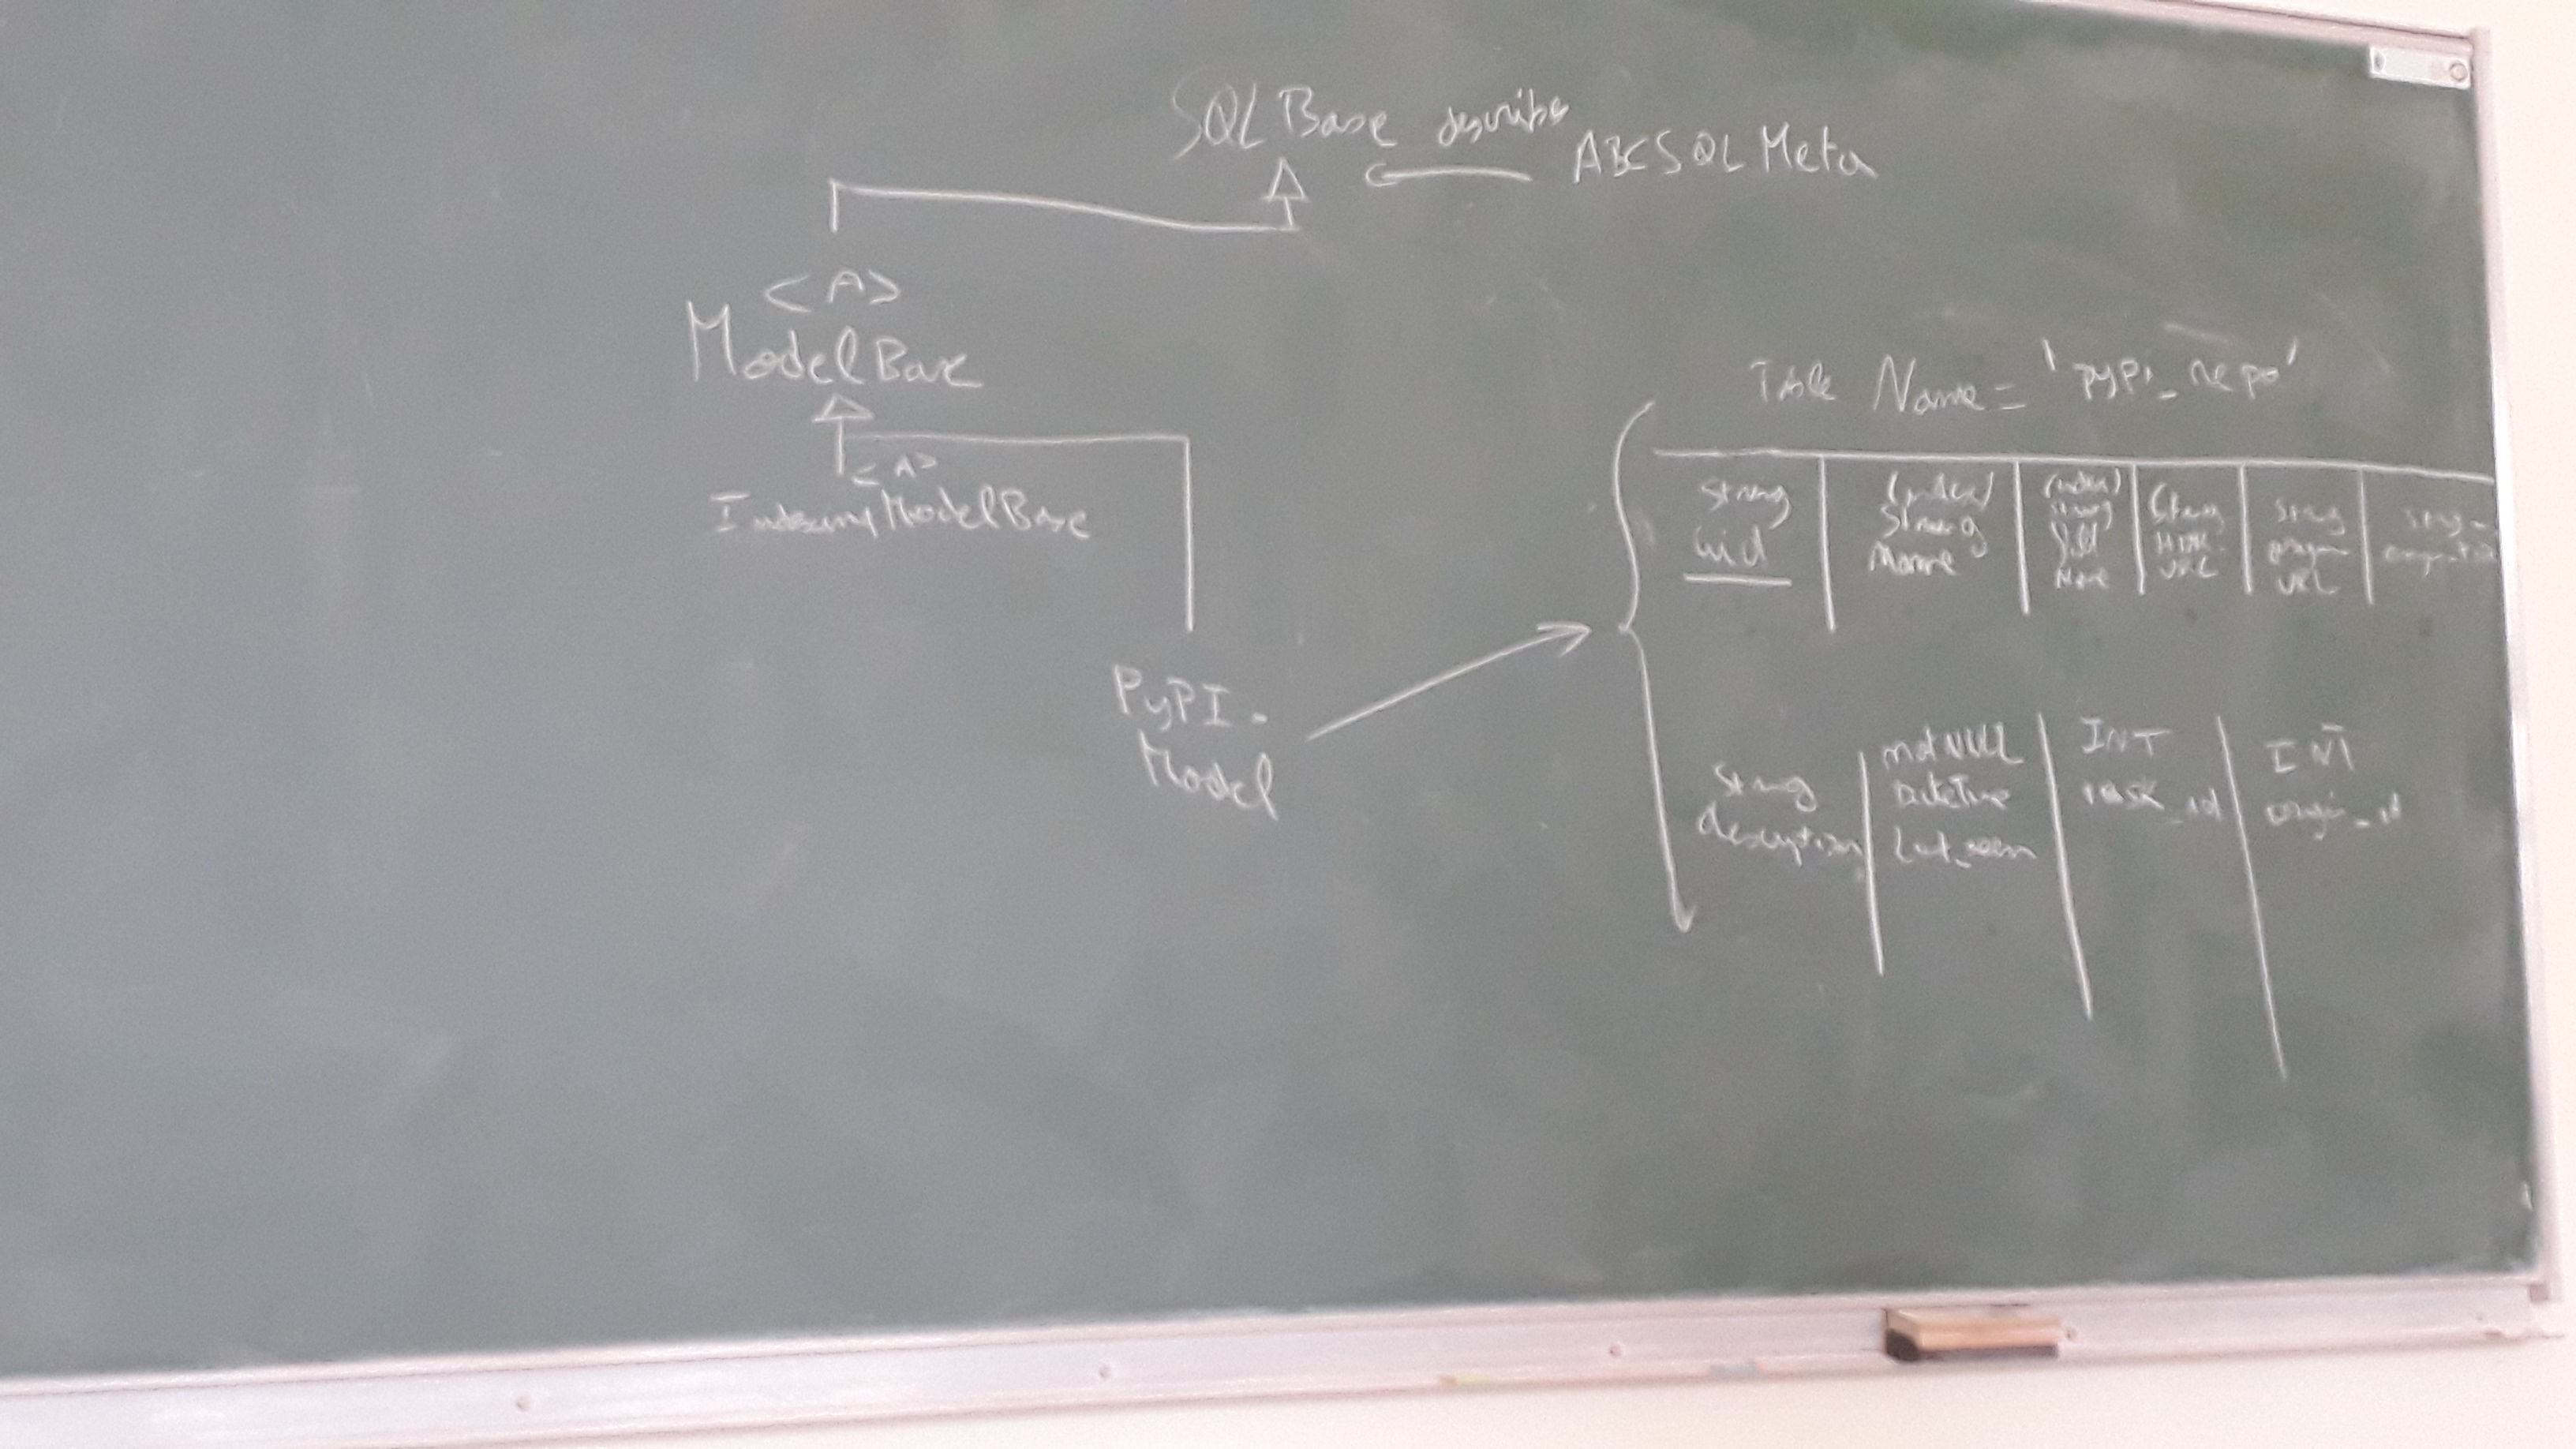 SQLBase describes
ABCSQLMeta
<A>
ModelBase
<A>
IndexingModelBase
PyPI_
Model
Table Name = 'pypi_repo'
String
uid
(index)
String
Name
(index)
String
full
Name
String
HTML
URL
String
origin
URL
String
String
description
notNULL
DateTime
last_seen
INT
task_id
INT
origin_id